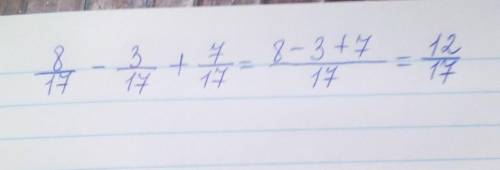 8/17 - 3/17 + 7/17 = (8 - 3 + 7)/17 = 12/17